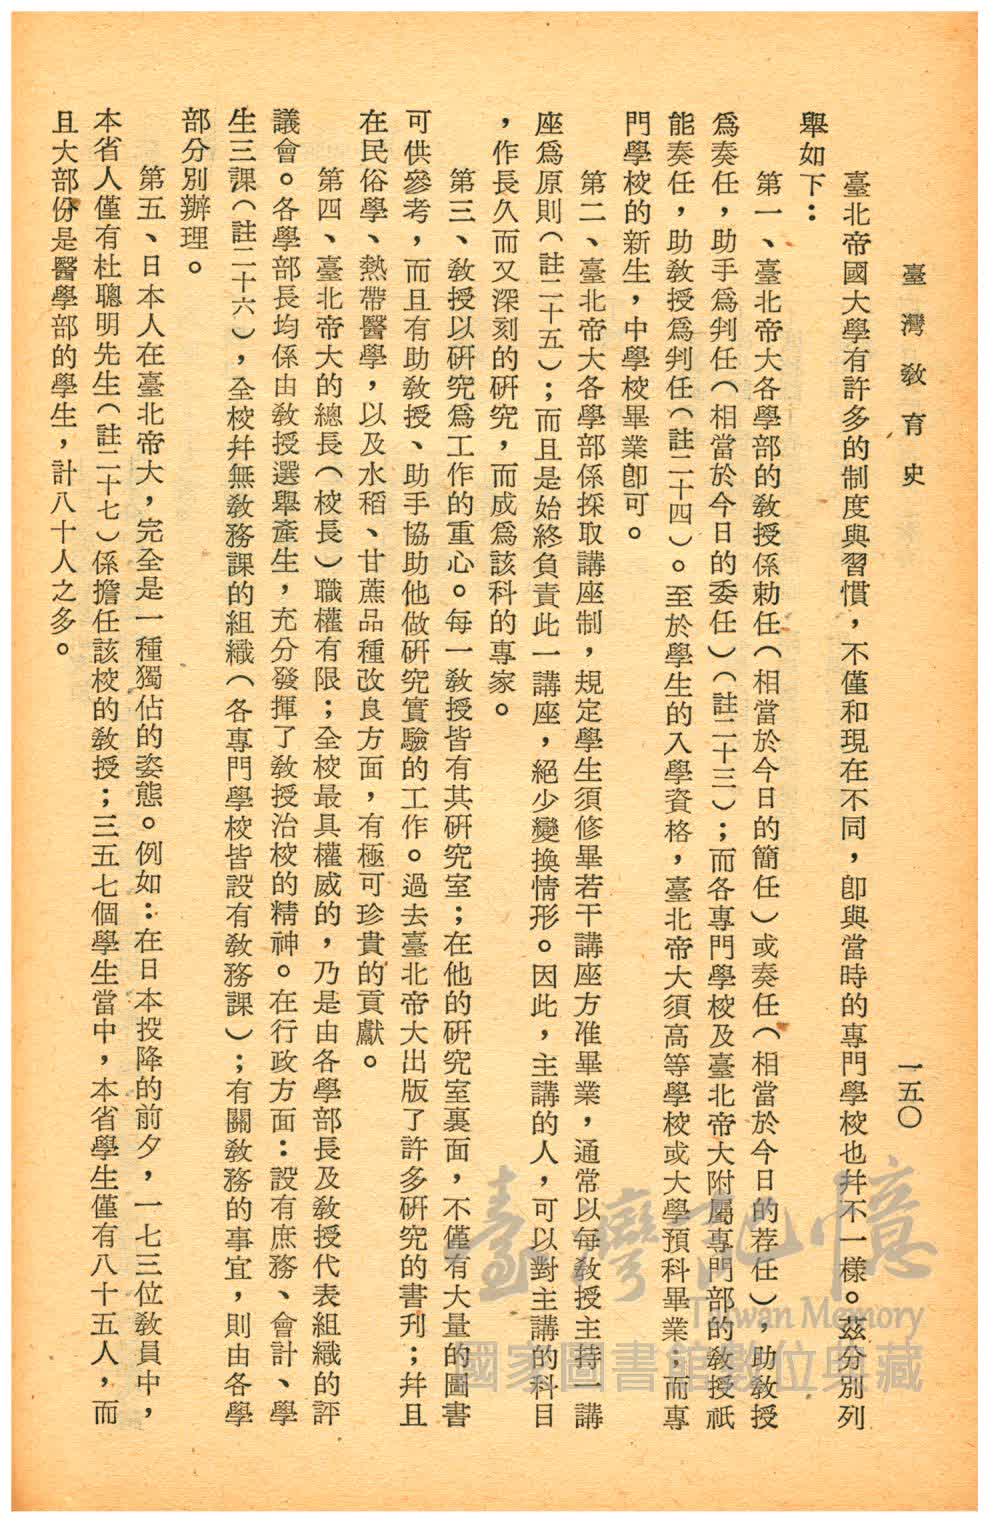 臺灣教育史
一五〇
臺北帝國大學有許多的制度與習慣，不僅和現在不同，卽與當時的專門學校也幷不一樣。茲分別列
舉如下：
第一、臺北帝大各學部的敎授係勅任（相當於今日的簡任）或奏任（相當於今日的荐任），助敎授
爲奏任，助手爲判任（相當於今日的委任）（註二十三）；而各專門學校及臺北帝大附屬專門部的敎授祇
能奏任，助敎授爲判任（註二十四）。至於學生的入學資格，臺北帝大須高等學校或大學預科畢業；而專
門學校的新生，中學校畢業卽可。
第二、臺北帝大各學部係採取講座制，規定學生須修畢若干講座方准畢業，通常以每敎授主持一講
座爲原則（註二十五）；而且是始終負責此一講座，絕少變換情形。因此，主講的人，可以對主講的科目
，作長久而又深刻的硏究，而成爲該科的專家。
第三、敎授以硏究爲工作的重心。每一敎授皆有其硏究室；在他的硏究室裏面，不僅有大量的圖書
可供參考，而且有助敎授、助手協助他做硏究實驗的工作。過去臺北帝大出版了許多硏究的書刊；幷且
在民俗學、熱帶醫學，以及水稻、甘蔗品種改良方面，有極可珍貴的貢獻。
第四、臺北帝大的總長（校長）職權有限；全校最具權威的，乃是由各學部長及敎授代表組織的評
議會。各學部長均係由敎授選舉產生，充分發揮了敎授治校的精神。在行政方面：設有庶務、會計、學
生三課（註二十六），全校幷無敎務課的組織（各專門學校皆設有敎務課）；有關敎務的事宜，則由各學
部分別辦理。
第五、日本人在臺北帝大，完全是一種獨佔的姿態。例如：在日本投降的前夕，一七三位敎員中，
本省人僅有杜聰明先生（註二十七）係擔任該校的敎授；三五七個學生當中，本省學生僅有八十五人，而
且大部份是醫學部的學生，計八十人之多。
臺灣記憶
Taiwan Memory
國家圖書館數位典藏